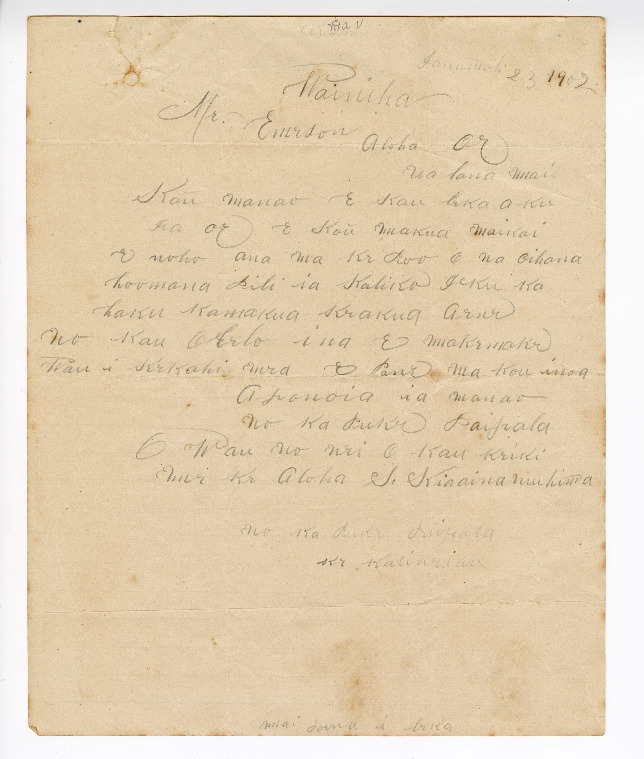 Kauai
Ianuwali 23 1902
Wainiha
Mr. Emerson
Aloha Oe
ua lana mai
Kau manao e kau leka a ku
ia oe E Kou makua maikai
E noho ana ma ke Poo o na oihana
hoomana pili ia Kahiko Ieku ka
haku Kamakua Keakua Aene
No kau Olelo ina E makemake
Wau i Kekahi mea E Pane ma kou inoa
Aponoia ia manao
No Ka Puke Paipala
O Wau no nei O kau keiki
me ke Aloha S. Kiaaina
no ka Puke Paipala
ke
mai i leka